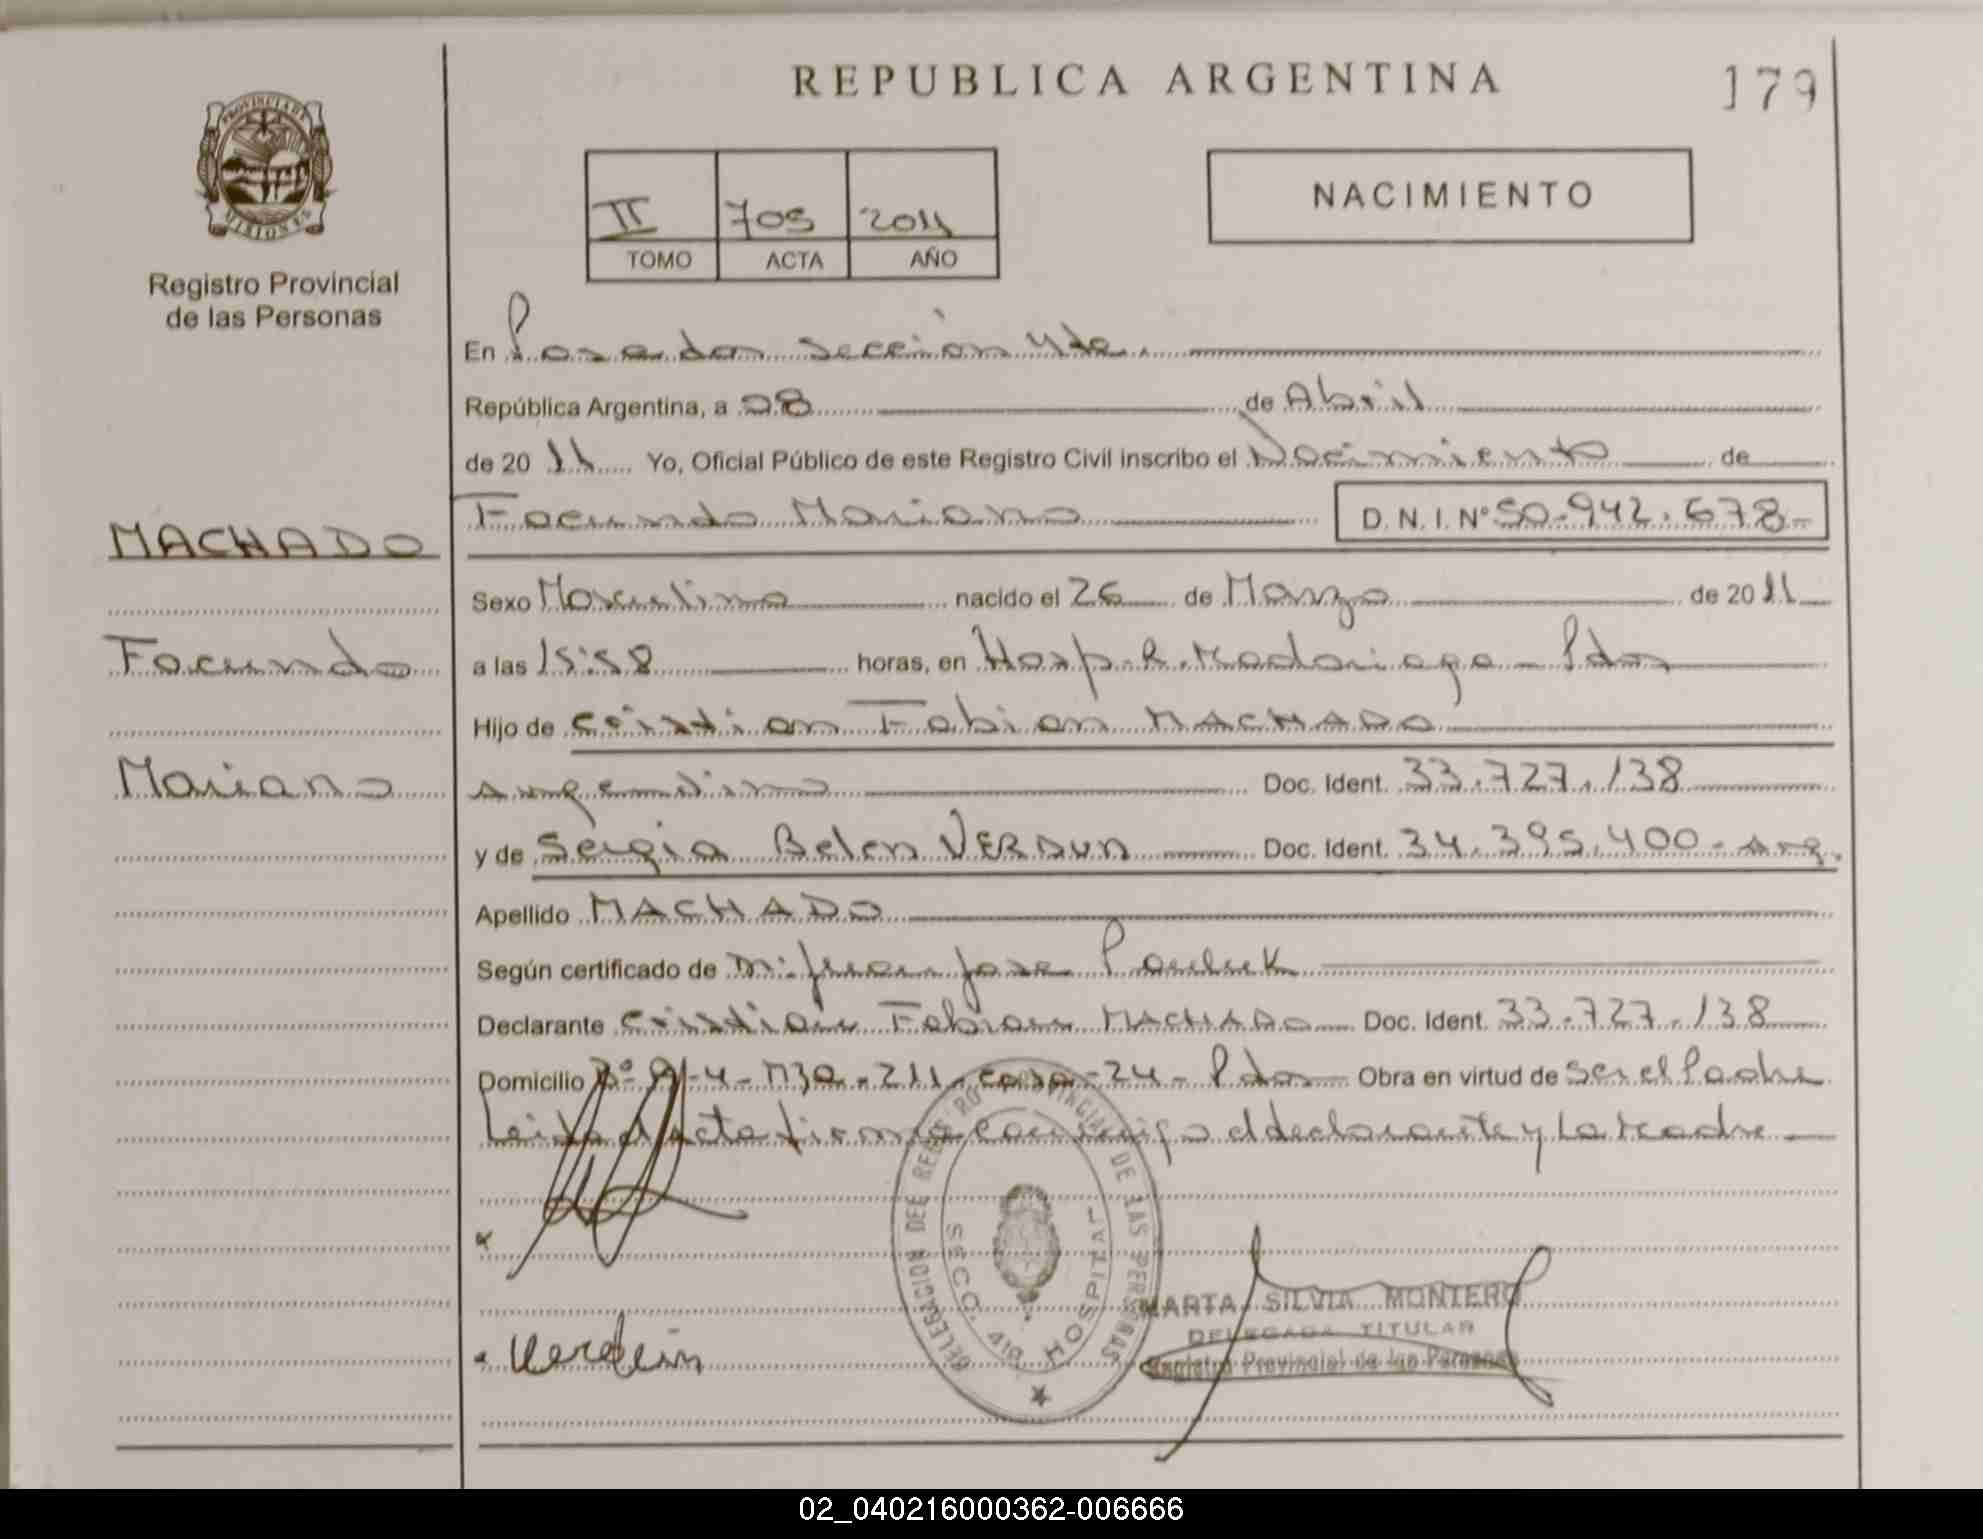 REPUBLICA ARGENTINA
179
PROVINCIA DE MISIONES
Registro Provincial
de las Personas
II 705 2011
TOMO ACTA AÑO
NACIMIENTO
En Posadas Sección 4ta.
República Argentina, a 08 de Abril
de 2011 Yo, Oficial Público de este Registro Civil inscribo el Nacimiento de
Facundo Mariano D. N. I. N° 50.942.678-
MACHADO
Facundo
Mariano
Sexo Masculino nacido el 26 de Marzo de 2011
a las 15:58 horas, en Hosp. R. Madariaga - Pdas
Hijo de Cristian Fabian MACHADO
Argentino Doc. Ident. 33.727.138
y de Sergia Belen VERDUN Doc. Ident. 34.395.400- Arg.
Apellido MACHADO
Según certificado de Juan Jose
Declarante Cristian Fabian MACHADO Doc. Ident. 33.727.138
Domicilio 4- Mza - 211 - casa - 24 - Pdas Obra en virtud de Ser el Padre
Leida el Acta firma conmigo el declarante y La Madre
DELEGACION DEL REGISTRO PROVINCIAL DE LAS PERSONAS
SECC. 4ta HOSPITAL
MARTA SILVIA MONTERO
DELEGADA TITULAR
Registro Provincial de las Personas
Verdun
02_040216000362-006666